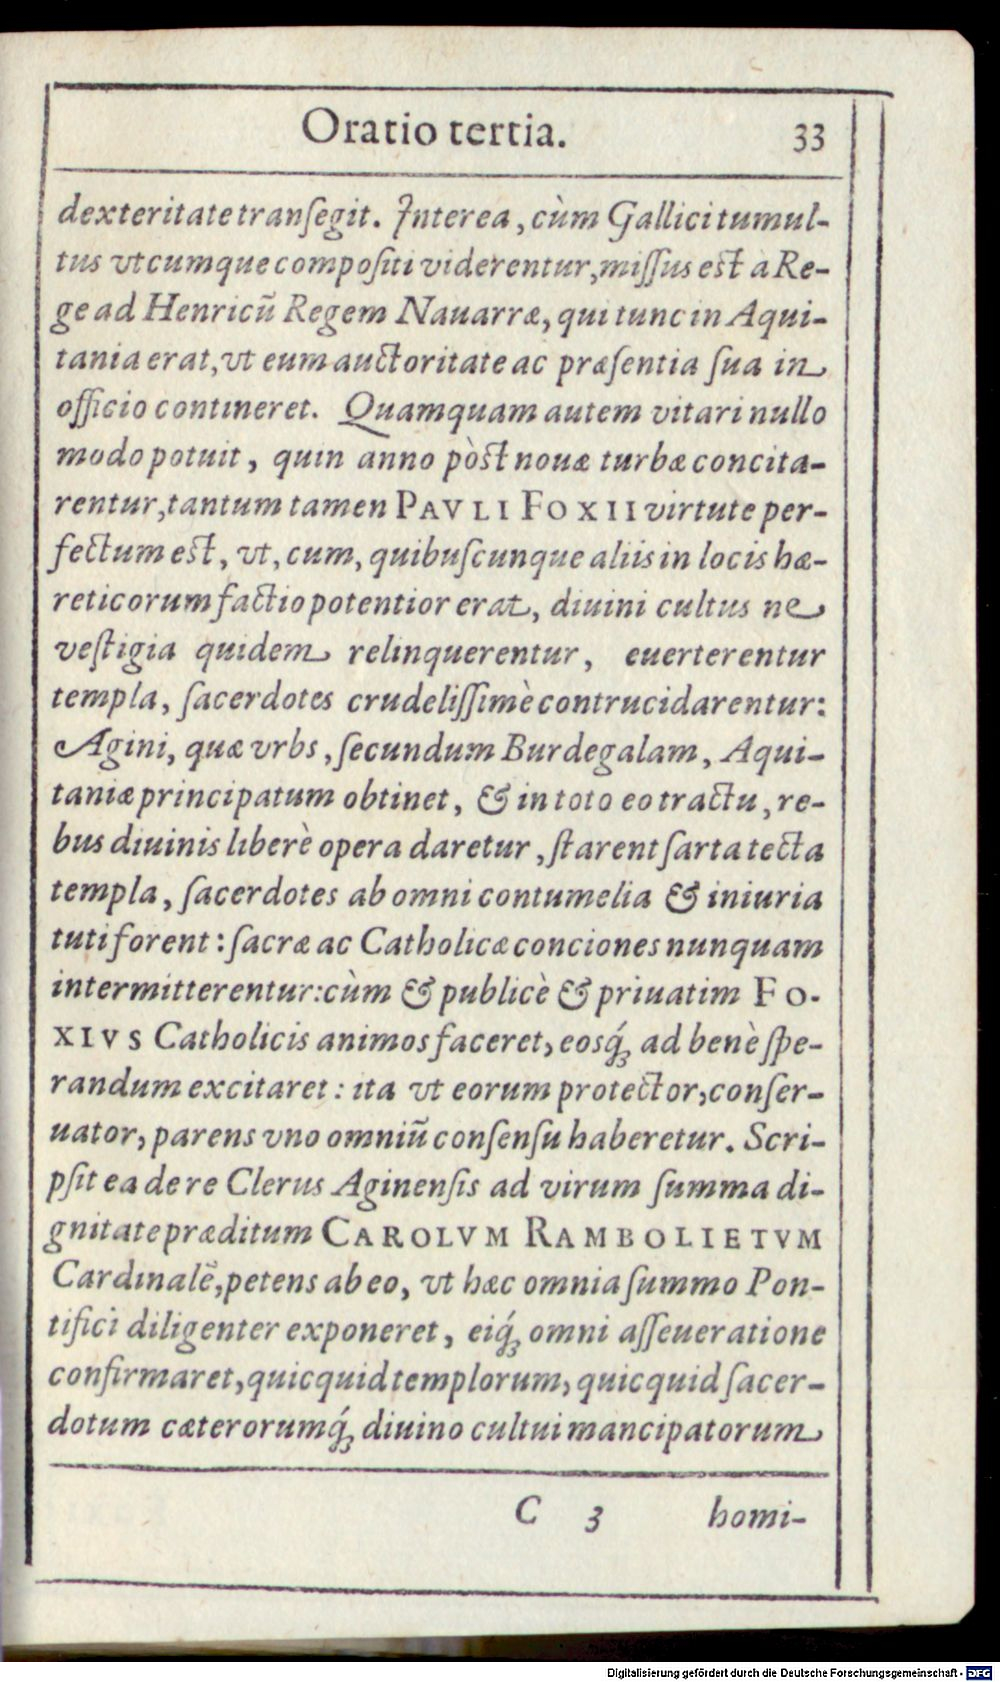 Oratio tertia. 33
dexteritate transegit. Interea, cùm Gallici tumul-
tus vtcumque compositi viderentur, missus est a Re-
ge ad Henricũ Regem Nauarræ, qui tunc in Aqui-
tania erat, vt eum auctoritate ac præsentia sua in
officio contineret. Quamquam autem vitari nullo
modo potuit, quin anno pòst nouæ turbæ concita-
rentur, tantum tamen PAVLI FOXII virtute per-
fectum est, vt, cum, quibuscunque aliis in locis hæ-
reticorum factio potentior erat, diuini cultus ne
vestigia quidem relinquerentur, euerterentur
templa, sacerdotes crudelissimè contrucidarentur:
Agini, quæ vrbs, secundum Burdegalam, Aqui-
taniæ principatum obtinet, & in toto eo tractu, re-
bus diuinis liberè opera daretur, starent sarta tecta
templa, sacerdotes ab omni contumelia & iniuria
tuti forent: sacræ ac Catholicæ conciones nunquam
intermitterentur: cùm & publicè & priuatim FO-
XIVS Catholicis animos faceret, eosq́; ad benè spe-
randum excitaret: ita vt eorum protector, conser-
uator, parens vno omniũ consensu haberetur. Scri-
psit ea de re Clerus Aginensis ad virum summa di-
gnitate præditum CAROLVM RAMBOLIETVM
Cardinalẽ, petens ab eo, vt hæc omnia summo Pon-
tifici diligenter exponeret, eiq́; omni asseueratione
confirmaret, quicquid templorum, quicquid sacer-
dotum cæterorumq́; diuino cultui mancipatorum
C 3 homi-
Digitalisierung gefördert durch die Deutsche Forschungsgemeinschaft - DFG